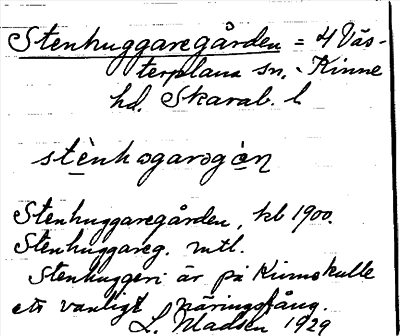 Stenhuggaregården = 4 Väs-
terplana sn. - Kinne
hd. Skarab. l
stènhəgarəgån
Stenhuggaregården, kb 1900.
Stenhuggareg. mtl.
Stenhuggeri är på Kinnekulle
ett vanligt näringsfång.
L. Madsen 1929